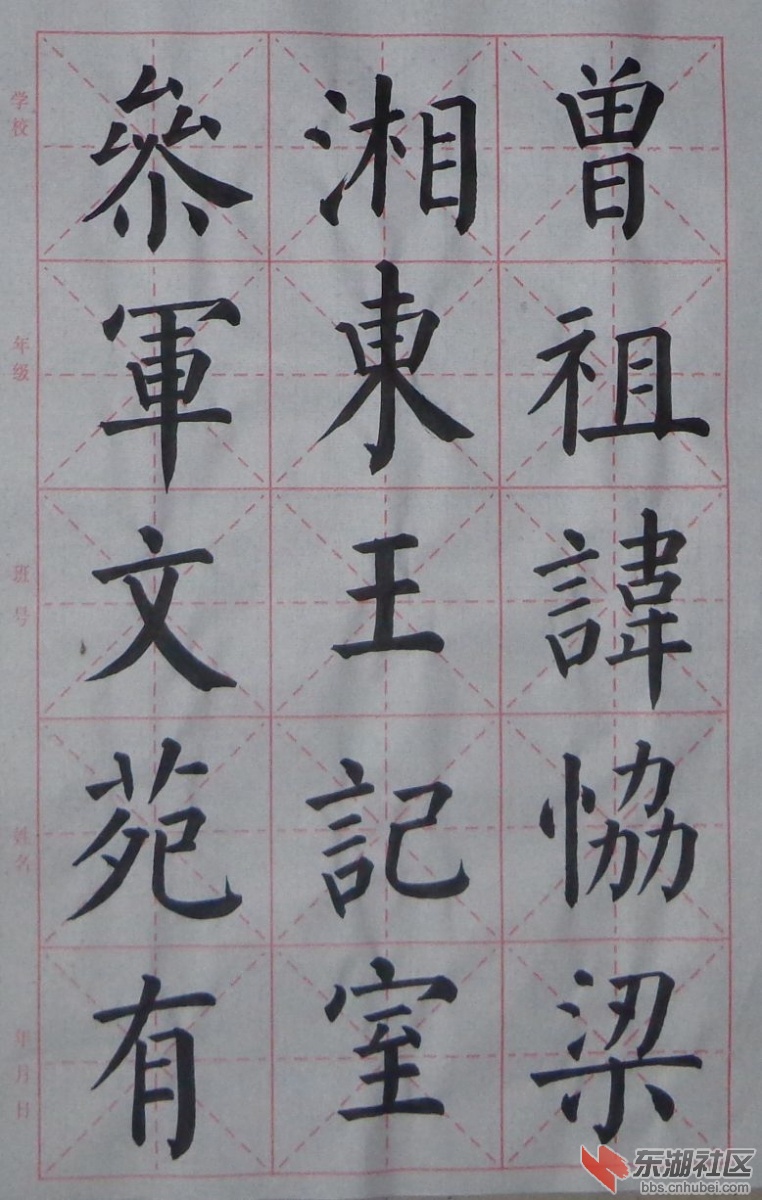 曾祖諱恊梁
湘東王記室
參軍文苑有
学校
年级
班号
姓名
年月日
东湖社区
bbs.cnhubei.com